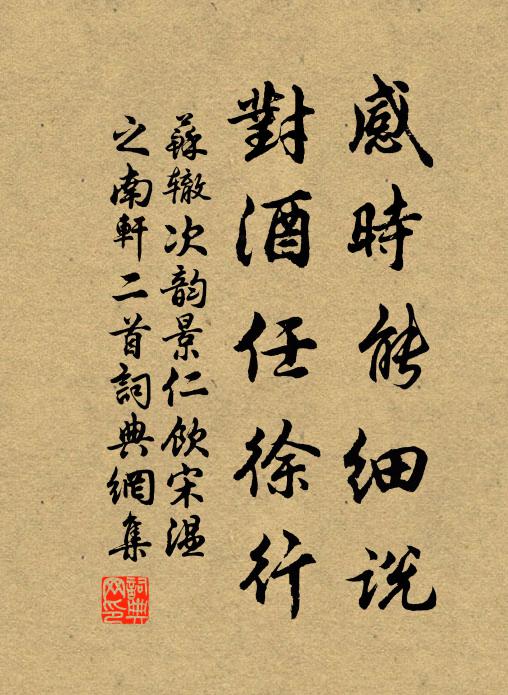 感時能細説
對酒任徐行
蘇辙次韵景仁飲宋温
之南軒二首詞典網集
詞典网印